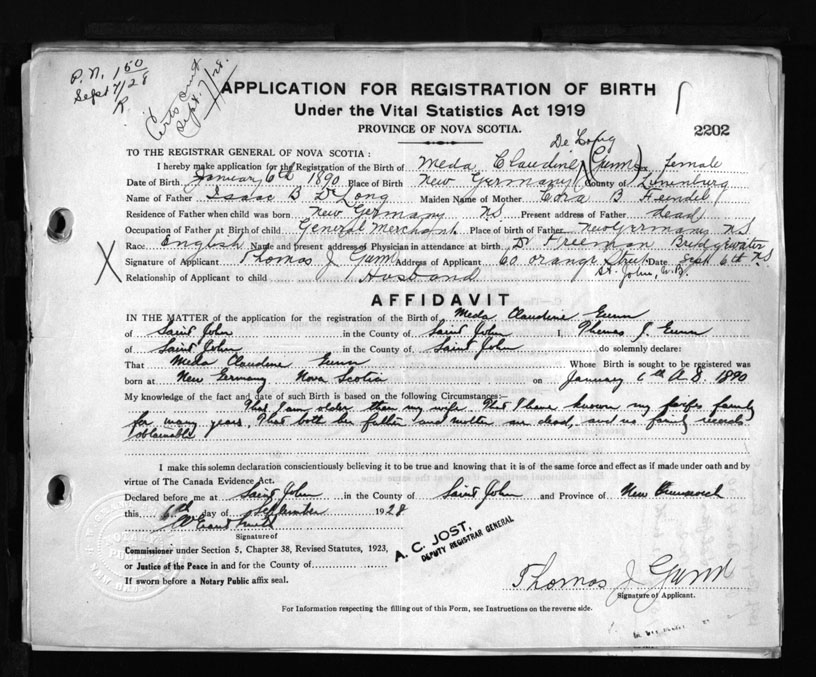 P.N. 1.50
Sept 7/28
R.
Certs
Sept. 7/28.
APPLICATION FOR REGISTRATION OF BIRTH
Under the Vital Statistics Act 1919
PROVINCE OF NOVA SCOTIA.
2202
De Long
TO THE REGISTRAR GENERAL OF NOVA SCOTIA:
I hereby make application for the Registration of the Birth of Meda Claudine (Gunn) Sex female
Date of Birth January 6th 1890 Place of Birth New Germany County of Lunenburg
Name of Father Isaac B De Long Maiden Name of Mother Cora B
Residence of Father when child was born New Germany NS Present address of Father dead
Occupation of Father at Birth of child General Merchant Place of birth of Father New Germany NS
Race English Name and present address of Physician in attendance at birth Dr Freeman Bridgewater
X Signature of Applicant Thomas J Gunn Address of Applicant 60 Orange Street Date Sept 6th NS
St. John, N.B.
Relationship of Applicant to child Husband
AFFIDAVIT
IN THE MATTER of the application for the registration of the Birth of Meda Claudine Gunn
of Saint John in the County of Saint John I, Thomas J. Gunn
of Saint John in the County of Saint John do solemnly declare:
That Meda Claudine Gunn Whose Birth is sought to be registered was
born at New Germany Nova Scotia on January 6th A.D. 1890
My knowledge of the fact and date of such Birth is based on the following Circumstances:—
That I am older than my wife. That I have known my family
for many years, that both her father and mother are dead, and no family records
obtainable
I make this solemn declaration conscientiously believing it to be true and knowing that it is of the same force and effect as if made under oath and by
virtue of The Canada Evidence Act.
Declared before me at Saint John in the County of Saint John and Province of New Brunswick
this 6th day of September 1928
Signature of
Commissioner under Section 5, Chapter 38, Revised Statutes, 1923,
or Justice of the Peace in and for the County of
If sworn before a Notary Public affix seal.
A. C. JOST,
DEPUTY REGISTRAR GENERAL
Thomas J Gunn
Signature of Applicant.
For Information respecting the filling out of this Form, see Instructions on the reverse side.